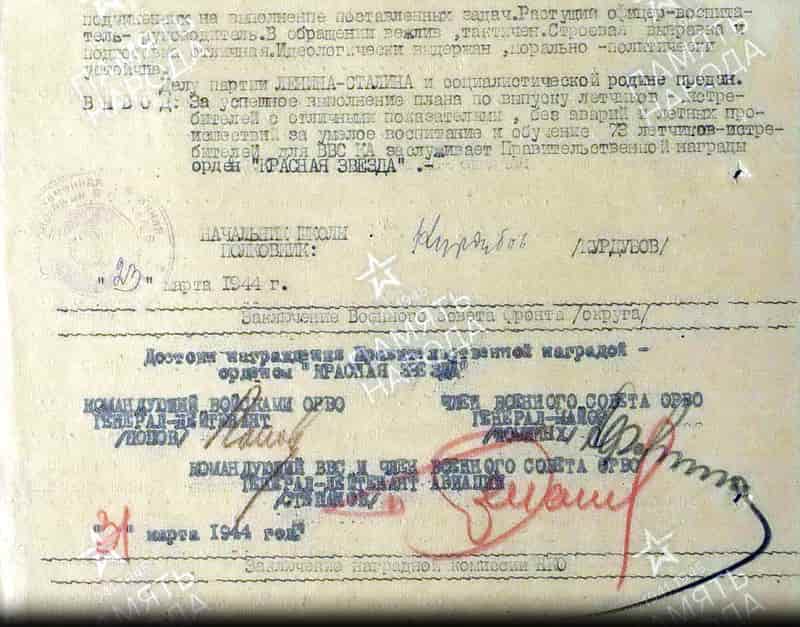 подчиненных на выполнение поставленных задач.Растущий офицер-воспита-
тель- руководитель.В обращении вежлив ,тактичен.Строевая выправка и
подготовка отличная.Идеологически выдержан ,морально -политически
устойчив.
Делу партии ЛЕНИНА-СТАЛИНА и социалистической родине предан.
ВЫВОД: За успешное выполнение плана по выпуску летчиков -истре-
бителей с отличными показателями , без аварий и летных про-
исшествий за умелое воспитание и обучение 73 летчиков-истре-
бителей для ВВС КА заслуживает Правительственной награды
орден "КРАСНАЯ ЗВЕЗДА" .-
НАЧАЛЬНИК ШКОЛЫ
ПОЛКОВНИК: Курдубов /КУРДУБОВ/
"23" марта 1944 г.
Заключение Военного совета фронта /округа/
Достоин награждения Правительственной наградой -
орденом "КРАСНАЯ ЗВЕЗДА"
КОМАНДУЮЩИЙ ВОЙСКАМИ ОРВО ЧЛЕН ВОЕННОГО СОВЕТА ОРВО
ГЕНЕРАЛ-ЛЕЙТЕНАНТ ГЕНЕРАЛ-МАЙОР
/ПОПОВ/ Попов
КОМАНДУЮЩИЙ ВВС И ЧЛЕН ВОЕННОГО СОВЕТА ОРВО
ГЕНЕРАЛ-ЛЕЙТЕНАНТ АВИАЦИИ
/СТЕПАНОВ/
"31" марта 1944 год"
Заключение наградной комиссии НКО
ПАМЯТЬ
НАРОДА